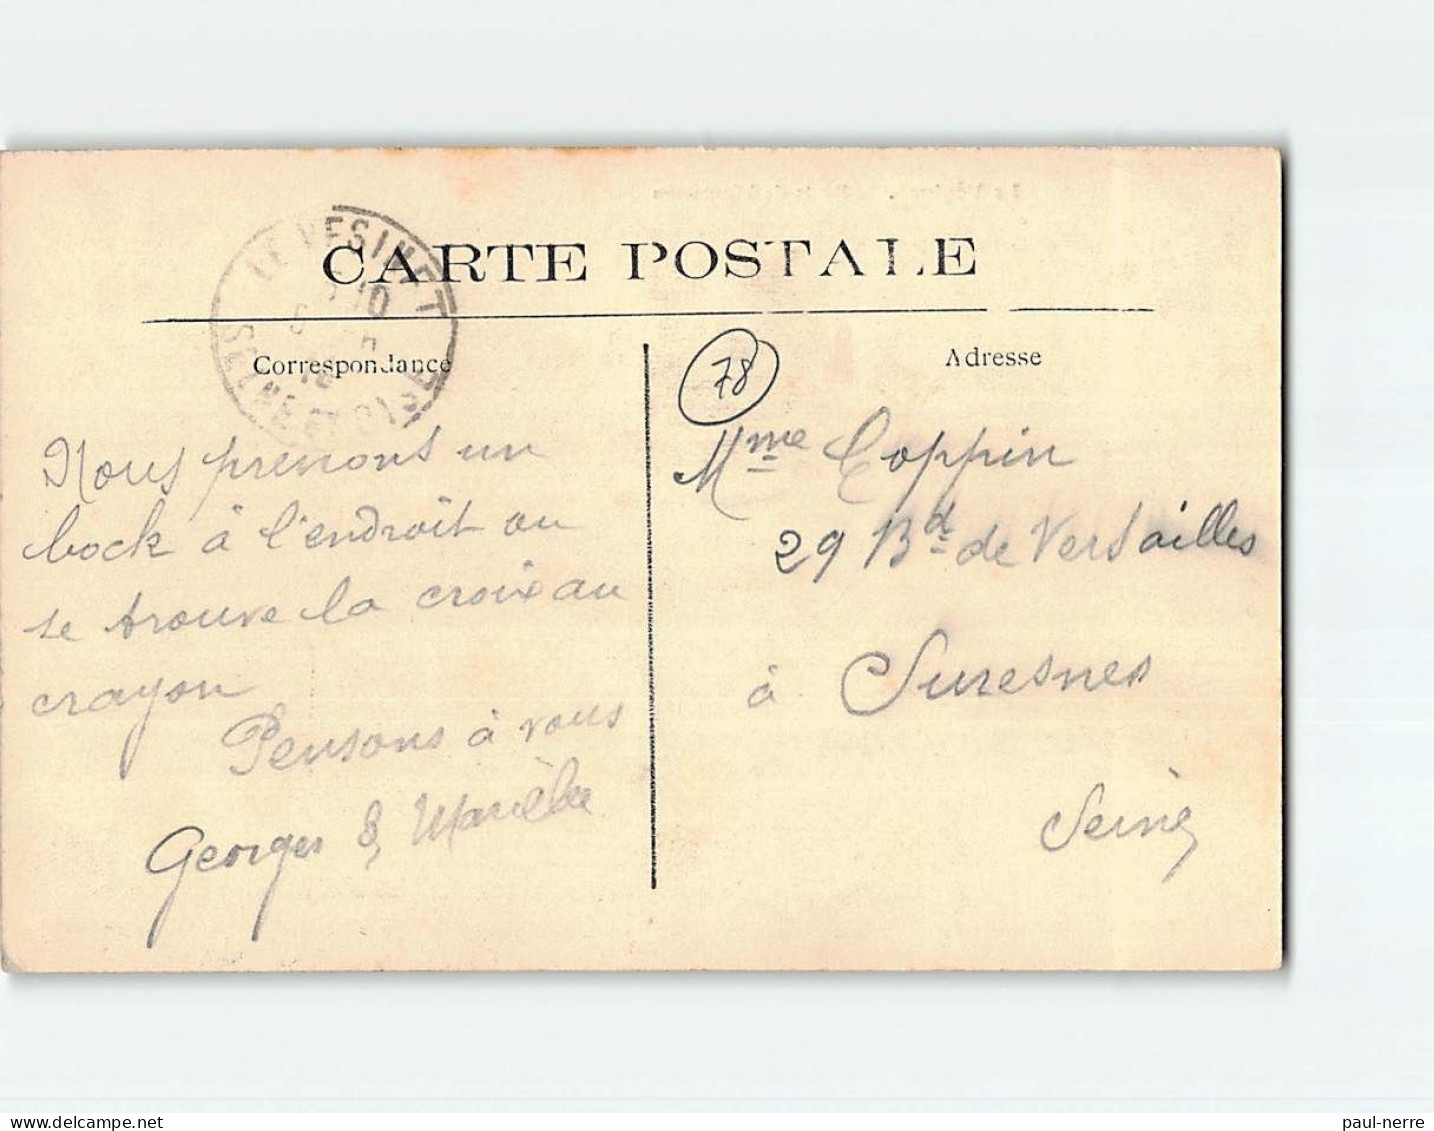 CARTE POSTALE
LE VESINET
SEINE ET OISE
Correspondance
Adresse
78
Nous prenons un
bock à l'endroit ou
se trouve la croix au
crayon
Pensons à vous
Georges &
Mme Coppin
29 Bd de Versailles
à Suresnes
Seine
delcampe.net
paul-nerre